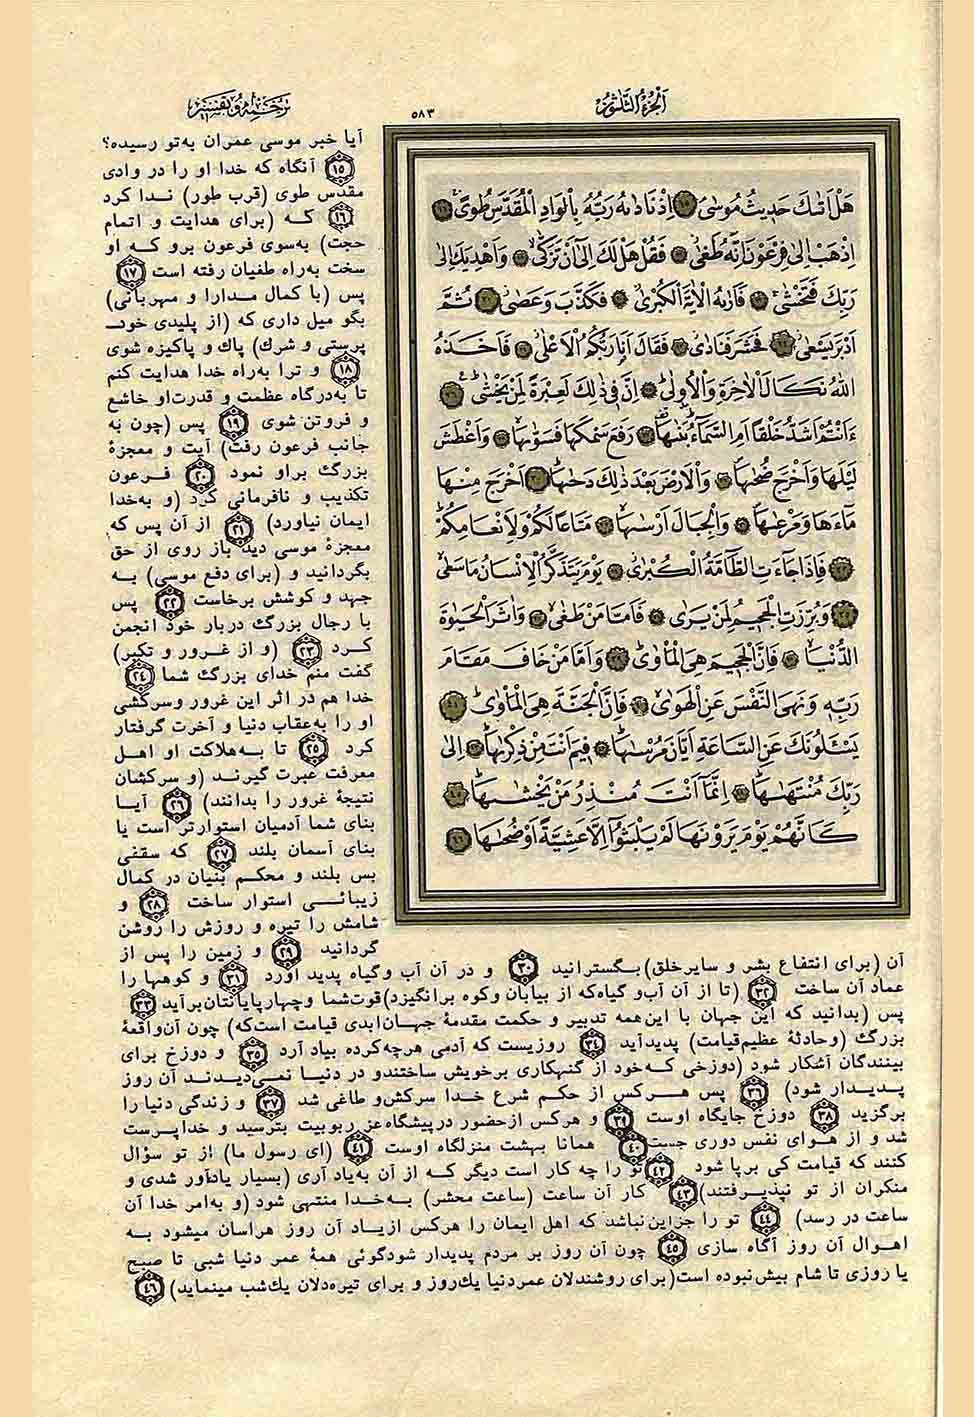 الجزء الثلثون
٥٨٣
ترجمه و تفسیر
هَلْ اَتٰىكَ حَدِيثُ مُوسٰى ١٥ اِذْ نَادٰىهُ رَبُّهُ بِالْوَادِ الْمُقَدَّسِ طُوًى ١٦
اِذْهَبْ اِلٰى فِرْعَوْنَ اِنَّهُ طَغٰى ١٧ فَقُلْ هَلْ لَكَ اِلٰى اَنْ تَزَكّٰى ١٨ وَاَهْدِيَكَ اِلٰى
رَبِّكَ فَتَخْشٰى ١٩ فَاَرٰيهُ الْاٰيَةَ الْكُبْرٰى ٢٠ فَكَذَّبَ وَعَصٰى ٢١ ثُمَّ
اَدْبَرَ يَسْعٰى ٢٢ فَحَشَرَ فَنَادٰى ٢٣ فَقَالَ اَنَا رَبُّكُمُ الْاَعْلٰى ٢٤ فَاَخَذَهُ
اللّٰهُ نَكَالَ الْاٰخِرَةِ وَالْاُولٰى ٢٥ اِنَّ فِي ذٰلِكَ لَعِبْرَةً لِمَنْ يَخْشٰى ٢٦
ءَاَنْتُمْ اَشَدُّ خَلْقًا اَمِ السَّمَاءُ بَنٰيهَا ٢٧ رَفَعَ سَمْكَهَا فَسَوّٰيهَا ٢٨ وَاَغْطَشَ
لَيْلَهَا وَاَخْرَجَ ضُحٰيهَا ٢٩ وَالْاَرْضَ بَعْدَ ذٰلِكَ دَحٰيهَا ٣٠ اَخْرَجَ مِنْهَا
مَاءَهَا وَمَرْعٰيهَا ٣١ وَالْجِبَالَ اَرْسٰيهَا ٣٢ مَتَاعًا لَكُمْ وَلِاَنْعَامِكُمْ
٣٣ فَاِذَا جَاءَتِ الطَّامَّةُ الْكُبْرٰى ٣٤ يَوْمَ يَتَذَكَّرُ الْاِنْسَانُ مَا سَعٰى
٣٥ وَبُرِّزَتِ الْجَحِيمُ لِمَنْ يَرٰى ٣٦ فَاَمَّا مَنْ طَغٰى ٣٧ وَاٰثَرَ الْحَيٰوةَ
الدُّنْيَا ٣٨ فَاِنَّ الْجَحِيمَ هِيَ الْمَأْوٰى ٣٩ وَاَمَّا مَنْ خَافَ مَقَامَ
رَبِّهِ وَنَهَى النَّفْسَ عَنِ الْهَوٰى ٤٠ فَاِنَّ الْجَنَّةَ هِيَ الْمَأْوٰى ٤١
يَسْـَٔلُونَكَ عَنِ السَّاعَةِ اَيَّانَ مُرْسٰيهَا ٤٢ فِيمَ اَنْتَ مِنْ ذِكْرٰيهَا ٤٣ اِلٰى
رَبِّكَ مُنْتَهٰيهَا ٤٤ اِنَّمَا اَنْتَ مُنْذِرُ مَنْ يَخْشٰيهَا ٤٥
كَاَنَّهُمْ يَوْمَ يَرَوْنَهَا لَمْ يَلْبَثُوا اِلَّا عَشِيَّةً اَوْ ضُحٰيهَا ٤٦
آیا خبر موسی عمران به‌تو رسیده؟
١٥ آنگاه که خدا او را در وادی
مقدس طوی (قرب طور) نـدا کرد
١٦ کـه (برای هدایت و اتمام
حجت) به‌سوی فرعون برو کـه او
سخت به‌راه طغیان رفته است ١٧
پس (با کمال مـدارا و مهربانی)
بگو میل داری که (از پلیدی خود
پرستی و شرک) پاک و پاکیزه شوی
١٨ و ترا به‌راه خدا هدایت کنم
تا به‌درگاه عظمت و قدرت‌او خاشع
و فروتن شوی ١٩ پس (چون به
جانب فرعون رفت) آیت و معجزهٔ
بزرگ براو نمود ٢٠ فـرعون
تکذیب و نافرمانی کرد (و به‌خدا
ایمان نیاورد) ٢١ از آن پس که
معجزهٔ موسی دید باز روی از حق
بگردانید و (برای دفع موسی) بـه
جهد و کوشش برخاست ٢٢ پس
با رجال بزرگ دربار خود انجمن
کـرد ٢٣ (و از غـرور و تکبر)
گفت منم خدای بزرگ شما ٢٤
خدا هم در اثر این غرور وسرکشی
او را به‌عقاب دنیا و آخرت گرفتار
کرد ٢٥ تا به‌هلاکت او اهـل
معرفت عبرت گیرند (و سرکشان
نتیجهٔ غرور را بدانند) ٢٦ آیـا
بنای شما آدمیان استوارتر است یا
بنای آسمان بلند ٢٧ که سقفی
بس بلند و محکـم بنیان در کمال
زیبائـی استوار ساخت ٢٨ و
شامش را تیره و روزش را روشن
گردانید ٢٩ و زمین را پس از
آن (برای انتفاع بشر و سایرخلق) بـگسترانید ٣٠ و در آن آب و گیاه پدید آورد ٣١ و کوهها را
عماد آن ساخت ٣٢ (تا از آن آب‌و گیاه‌که از بیابان وکوه برانگیزد)قوت‌شما وچهارپایانتان‌برآید ٣٣
پس (بدانید که این جهان با این‌همه تدبیر و حکمت مقدمهٔ جهـان‌ابدی قیامت است‌که) چون آن‌واقعهٔ
بزرگ (وحادثهٔ عظیم‌قیامت) پدیدآید ٣٤ روزیست که آدمی هرچه‌کرده بیاد آرد ٣٥ و دوزخ برای
بینندگان آشکار شود (دوزخی که‌خود از گنهکاری برخویش ساختندو در دنیـا نمی‌دیدنـد آن روز
پـدیـدار شود) ٣٦ پس هـرکس از حکـم شرع خـدا سرکش‌و طاغی شد ٣٧ و زندگی دنیا را
برگزید ٣٨ دوزخ جایگاه اوست ٣٩ و هرکس ازحضور درپیشگاه‌عز ربوبیت بترسید و خداپرست
شد و از هـوای نفس دوری جست ٤٠ همانا بهشت منزلگاه اوست ٤١ (ای رسول ما) از تو سؤال
کنند که قیامت کی برپا شود ٤٢ تو را چه کار است دیگر کـه از آن به‌یاد آری (بسیار یادآور شدی و
منکران از تو نپذیـرفتند) ٤٣ کار آن ساعت (ساعت محشر) بـه‌خدا منتهی شود (و به‌امر خدا آن
ساعت در رسد) ٤٤ تو را جزاین‌نباشد که اهل ایمان را هرکس ازیـاد آن روز هراسان میشود بـه
اهـوال آن روز آگاه سازی ٤٥ چون آن روز بر مردم پدیدار شودگوئی همهٔ عمر دنیا شبی تا صبح
یا روزی تا شام بیش‌نبوده است(برای روشندلان عمردنیا یک‌روز و برای تیره‌دلان یک‌شب مینماید) ٤٦